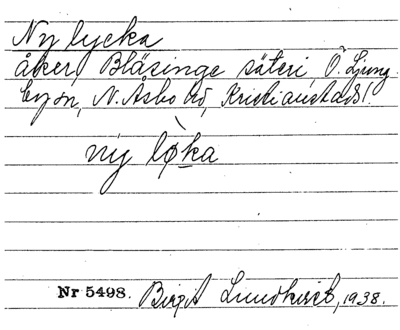 Ny lycka
åker, Blåsinge säteri, Ö. Ljung-
byn, N. Åsbo hd, Kristianstads l.
nỳ lø̀ka
Nr 5498. Birgit Lundkvist, 1938.